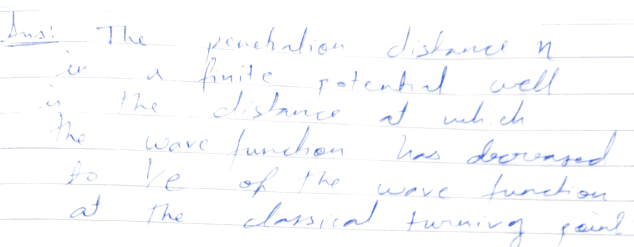 Ans: The penetration distance η
in a finite potential well
is the distance at which
the wave function has decreased
to 1/e of the wave function
at the classical turning point